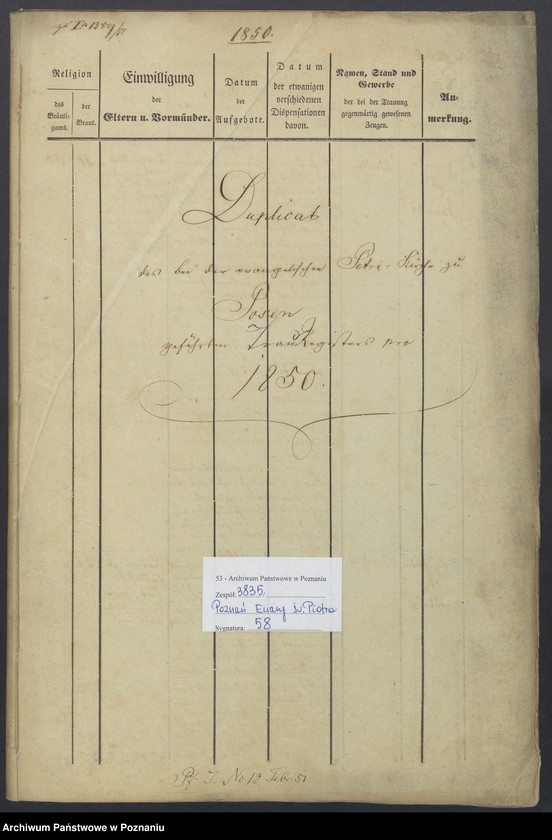 1850.
Religion
des Bräuti-
gams.
der
Braut.
Einwilligung
der
Eltern u. Vormünder.
Datum
der
Aufgebote.
Datum
der etwanigen
verschiedenen
Dispensationen
davon.
Namen, Stand und
Gewerbe
der bei der Trauung
gegenwärtig gewesenen
Zeugen.
An-
merkung.
Duplicat
des bei der evangelischen Petri-Kirche zu
Posen
geführten Trau Registers pro
1850.
53 - Archiwum Państwowe w Poznaniu
Zespół: 3835
Poznań Ewang. św. Piotra
Sygnatura: 58
No 12 Febr 51
Archiwum Państwowe w Poznaniu
Archiwum Państwowe w Poznaniu